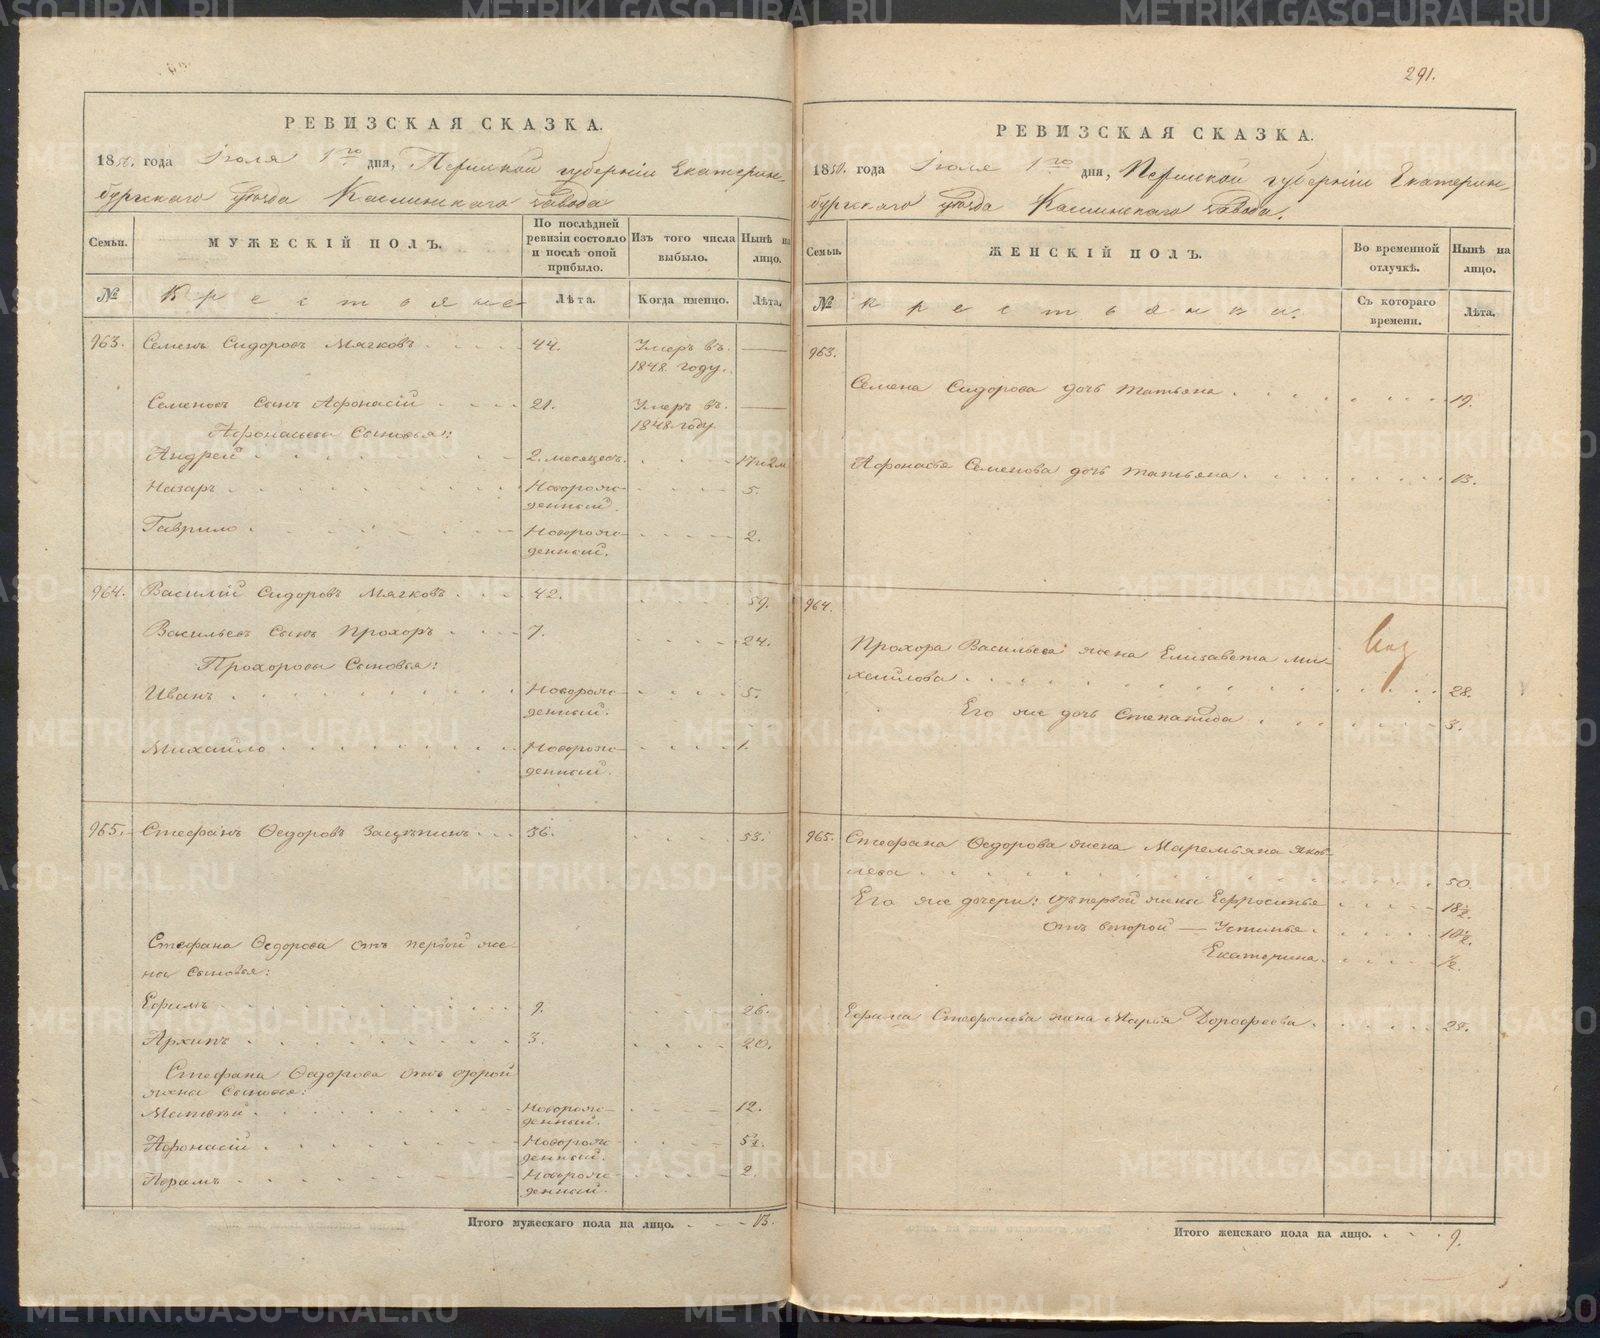 РЕВИЗСКАЯ СКАЗКА.
1850. года Іюля 1го дня, Пермской губерніи Екатерин-
бургскаго уѣзда Каслинскаго завода
Семьи.
МУЖЕСКІЙ ПОЛЪ.
По послѣдней ревизіи состояло и послѣ оной прибыло.
Изъ того числа выбыло.
Нынѣ на лицо.
№
Крестьяне
Лѣта.
Когда именно.
Лѣта.
963. Семенъ Сидоровъ Мягковъ 44. Умеръ въ
1848 году.
Семеновъ сынъ Афонасій 21. Умеръ въ
1848 году
Афонасьевы сыновья:
Андрей 2. месяцевъ. 17 и 2 м
Назаръ Новорож- 5.
денный.
Гаврило Новорож- 2.
денный.
964. Василій Сидоровъ Мягковъ 42. 59.
Васильевъ сынъ Прохоръ 7. 24.
Прохоровы сыновья:
Иванъ Новорож- 5.
денный.
Михайло Новорож- 1.
денный.
965. Стефанъ Ѳедоровъ 36. 53.
Стефана Ѳедорова отъ первой же-
ны сыновья:
Ефимъ 9. 26.
Архипъ 3. 20.
Стефана Ѳедорова отъ второй
жены сыновья:
Матвѣй Новорож- 12.
денный.
Афонасій Новорож- 5½.
денный.
Абрамъ Новорож- 2.
денный.
Итого мужескаго пола на лицо. 13.
291.
РЕВИЗСКАЯ СКАЗКА.
1850. года Іюля 1го дня, Пермской губерніи Екатерин-
бургскаго уѣзда Каслинскаго завода.
Семьи.
ЖЕНСКІЙ ПОЛЪ.
Во временной отлучкѣ.
Нынѣ на лицо.
№
Крестьянки.
Съ котораго времени.
Лѣта.
963.
Семена Сидорова дочь Татьяна 19.
Афонасья Семенова дочь Татьяна 13.
964.
Прохора Васильева жена Елизавета Ми-
хайлова 28.
Его же дочь Степанида 3.
965. Стефана Ѳедорова жена Маремьяна Яков-
лева 50.
Его же дочери: отъ первой жены Ефросинья 18½.
отъ второй — Устинья 10½.
Екатерина ½.
Ефима Стефанова жена Марья Дорофеева 28.
Итого женскаго пола на лицо. 9.
METRIKI.GASO-URAL.RU